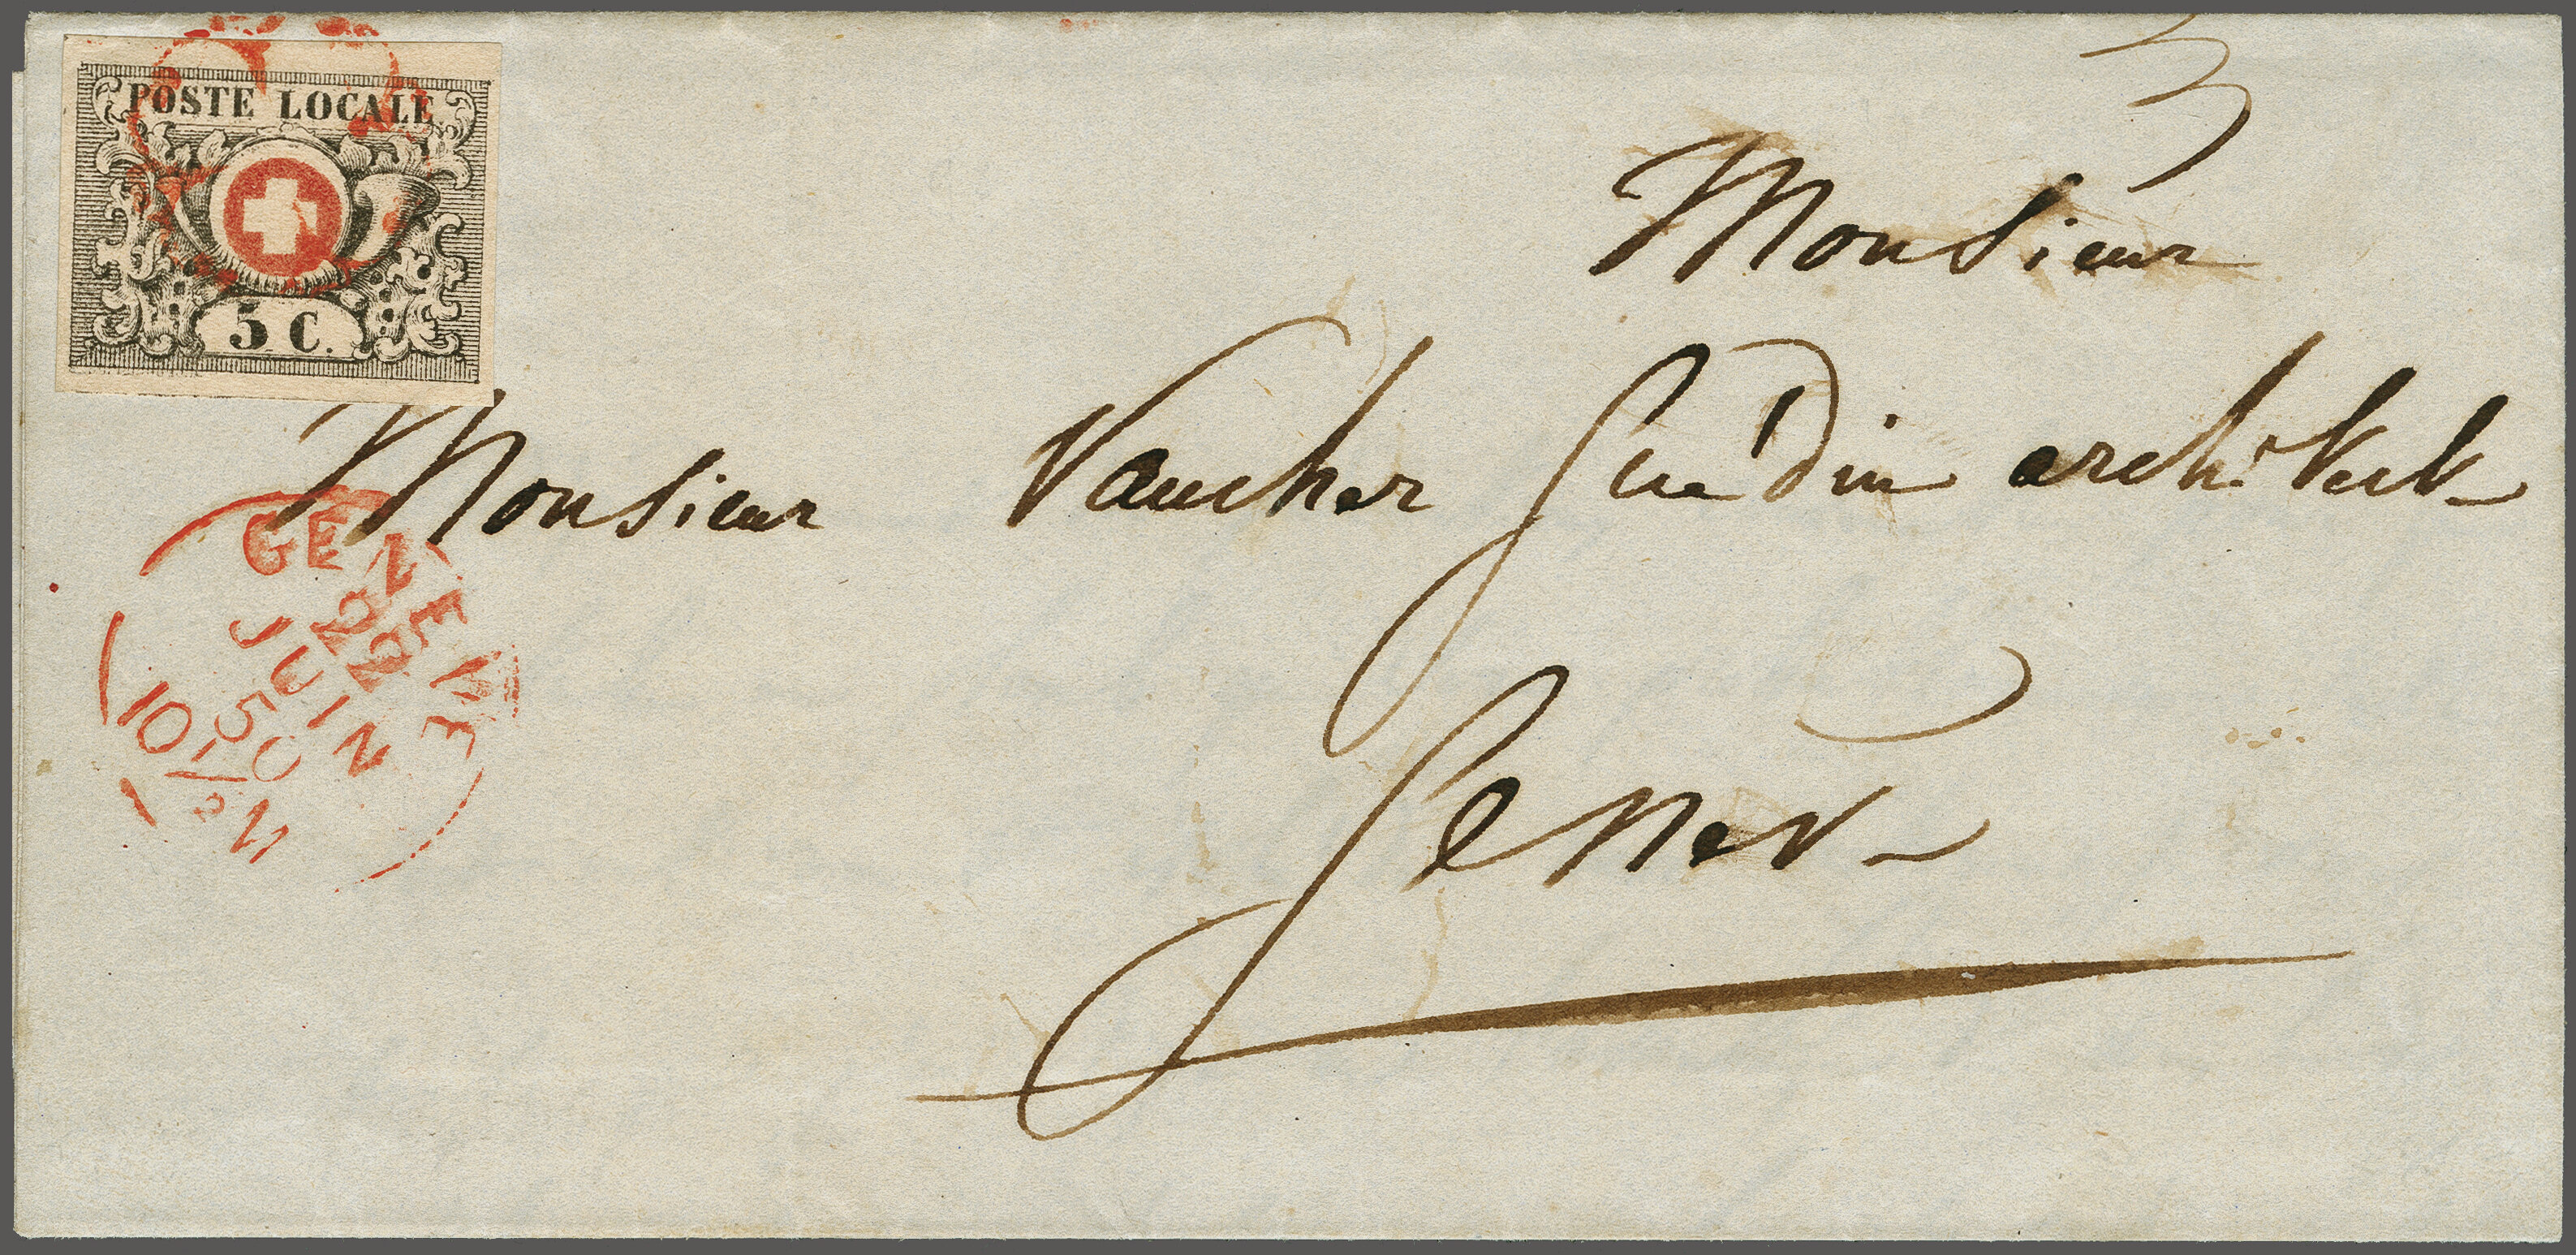 POSTE LOCALE
5 C.
Monsieur
Monsieur Vaucher Guédin architecte
Genève
GENEVE
22
JUIN
50
10
M